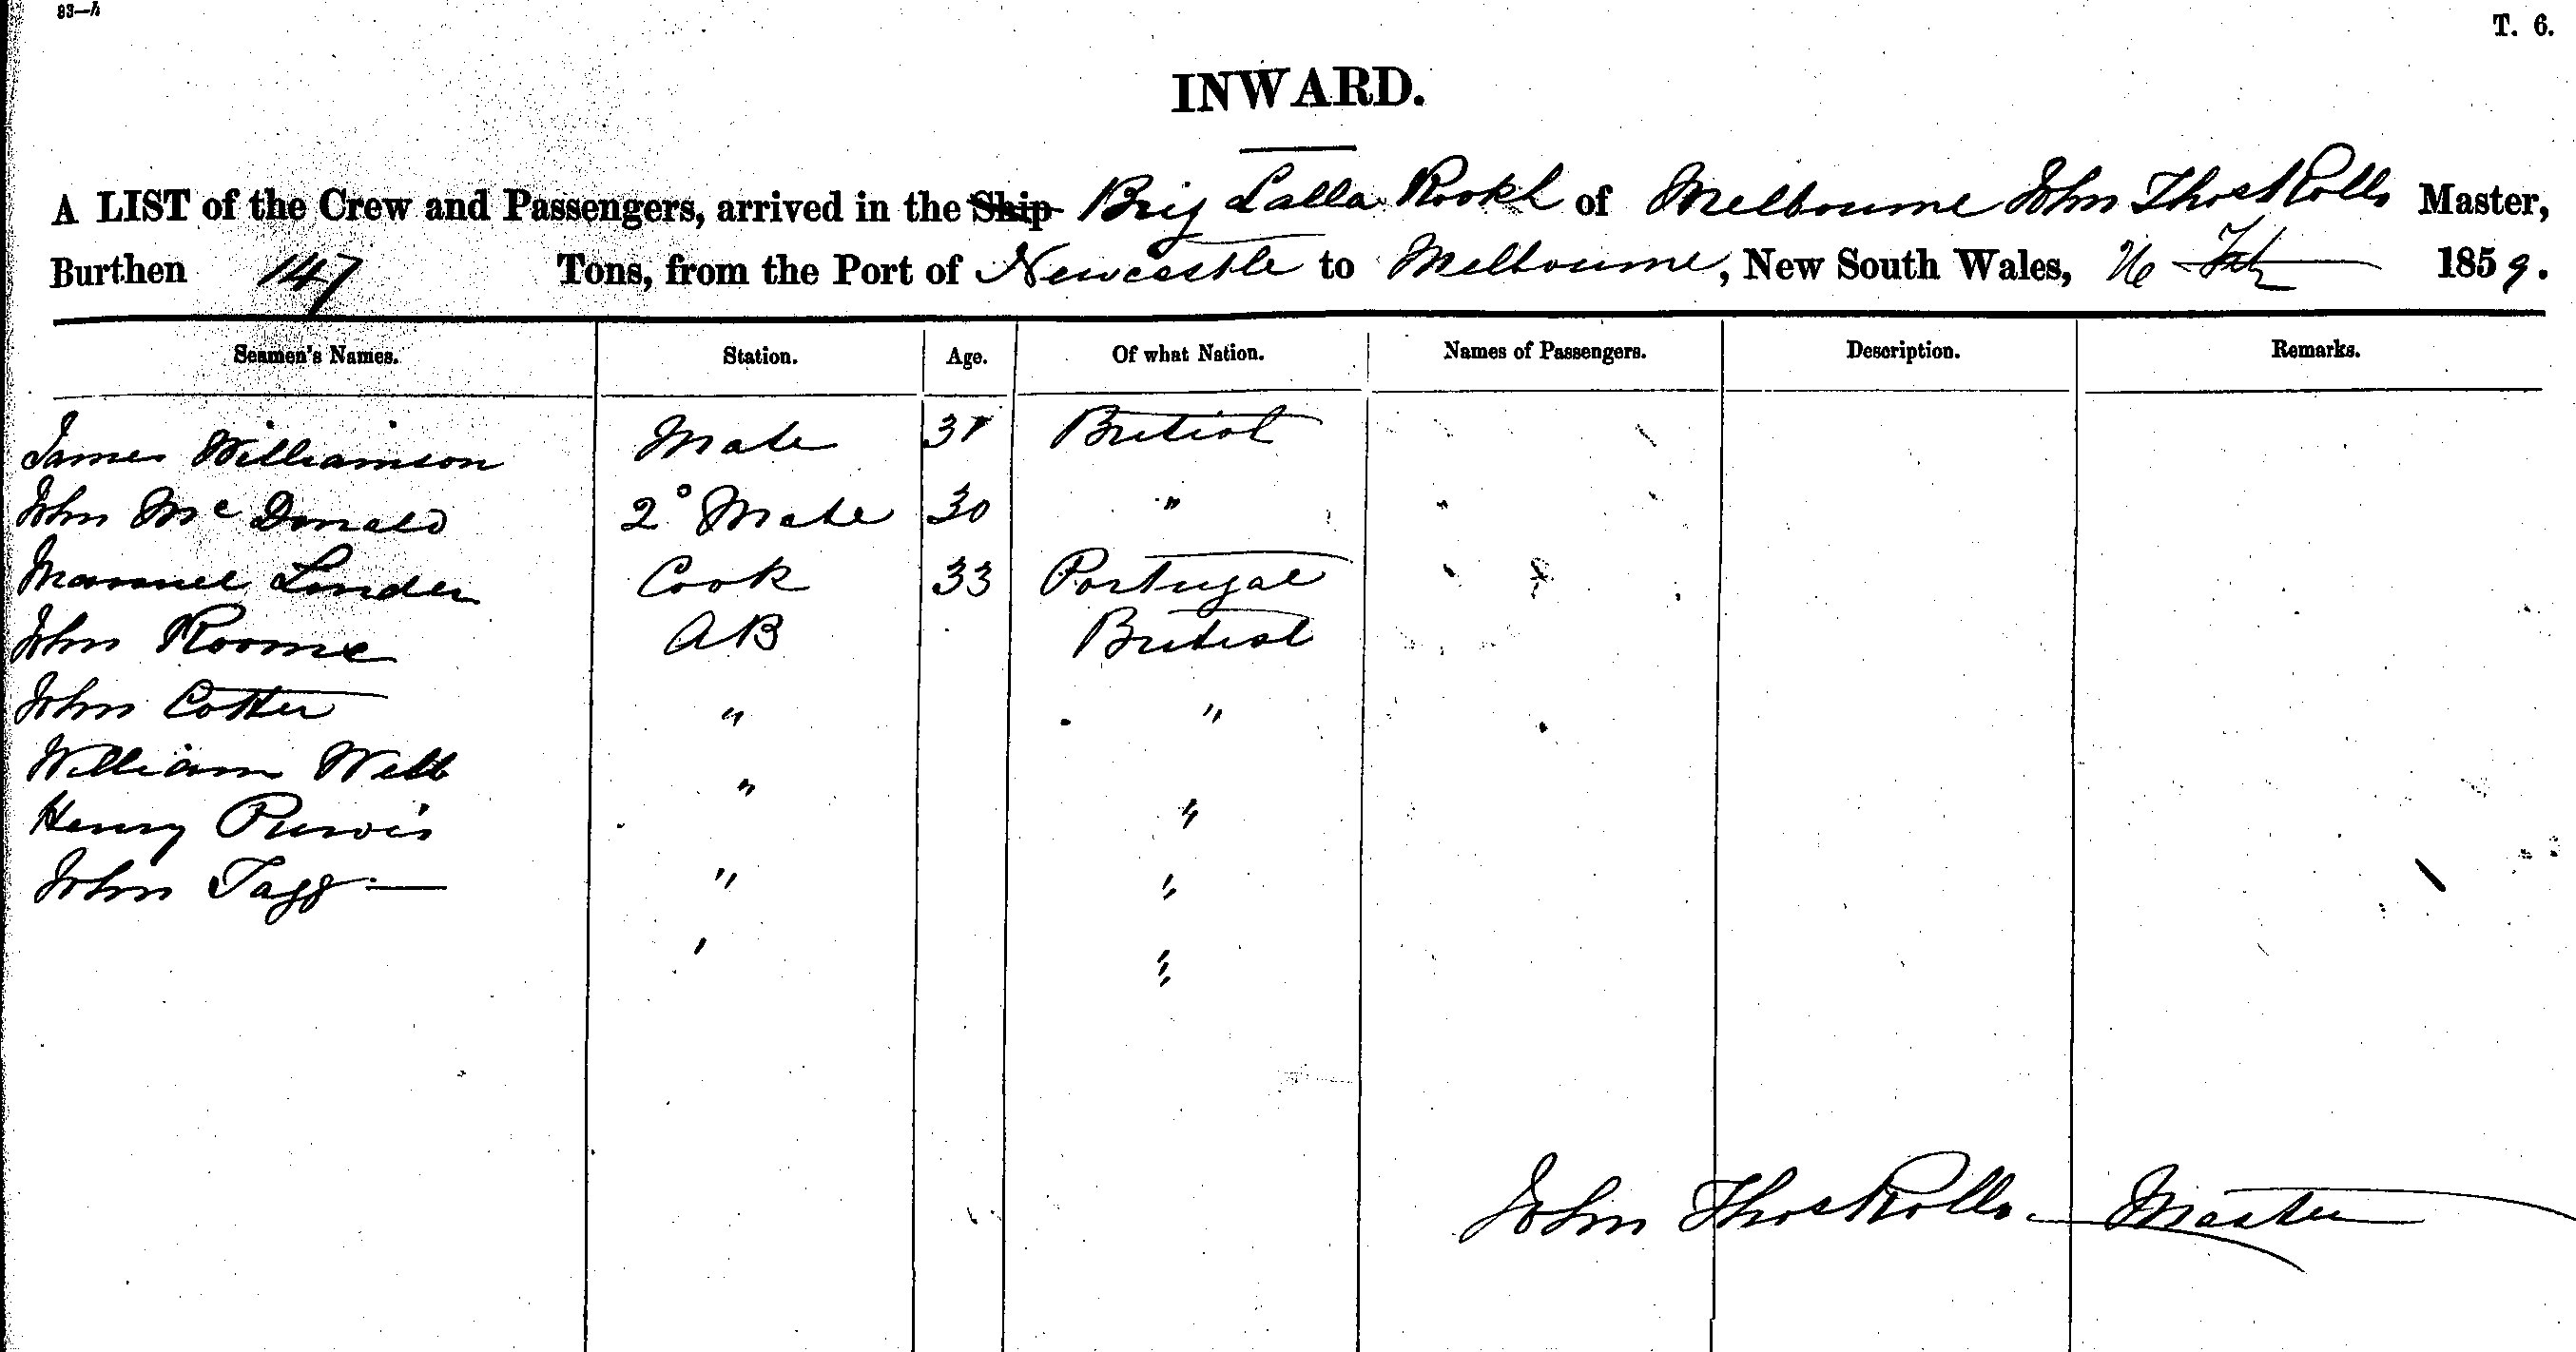 93—h
T. 6.
INWARD.
A LIST of the Crew and Passengers, arrived in the Ship Brig Lalla Rookh of Melbourne John Thos Rolls Master,
Burthen 147 Tons, from the Port of Newcastle to Melbourne, New South Wales, Feb 1859.
Seamen's Names. Station. Age. Of what Nation. Names of Passengers. Description. Remarks.
James Williamson Mate British
John McDonald 2° Mate 30 "
Manuel Cook 33 Portugal
John Roome AB British
John Cotter " "
William Webb "
Henry Purvis "
John Tagg — " "
' "
John Thos Rolls — Master